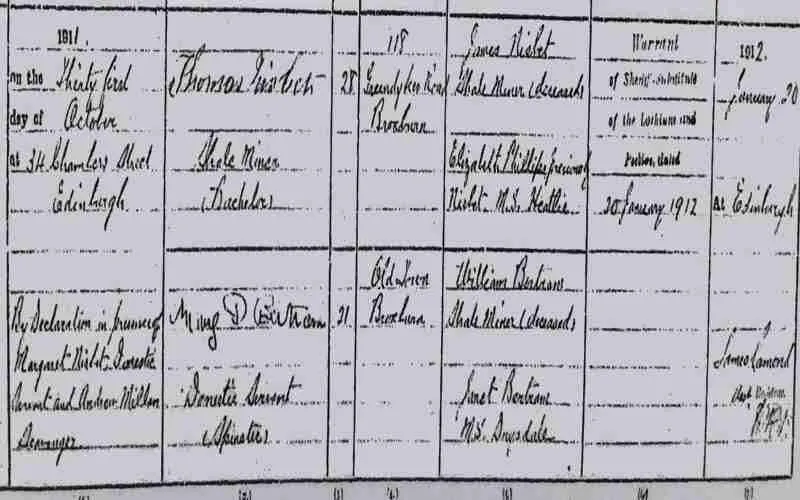 1911.
on the Thirty first
day of October
at 34 Chambers Street
Edinburgh
By Declaration in presence of
Margaret Nisbet Domestic
Servant and Andrew Millan
Scavenger
Thomas Nisbet
Shale Miner
(Bachelor)
Mary D Bertram
Domestic Servant
(Spinster)
28
21
118
Greendykes Road
Broxburn
Old Town
Broxburn
James Nisbet
Shale Miner (deceased)
Elizabeth Phillips previously
Nisbet M.S.
William Bertram
Shale Miner (deceased)
Janet Bertram
M.S. Drysdale
Warrant
of Sheriff-Substitute
of the Lothians and
Peebles, dated
20 January 1912
1912
January 20
at Edinburgh
James Lamond